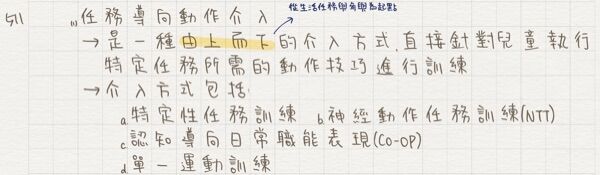 從生活任務與參與為起點
511 (1)任務導向動作介入
→是一種由上而下的介入方式,直接針對兒童執行
特定任務所需的動作技巧進行訓練
→介入方式包括:
a.特定性任務訓練 b.神經動作任務訓練(NTT)
c.認知導向日常職能表現(CO-OP)
d.單一運動訓練